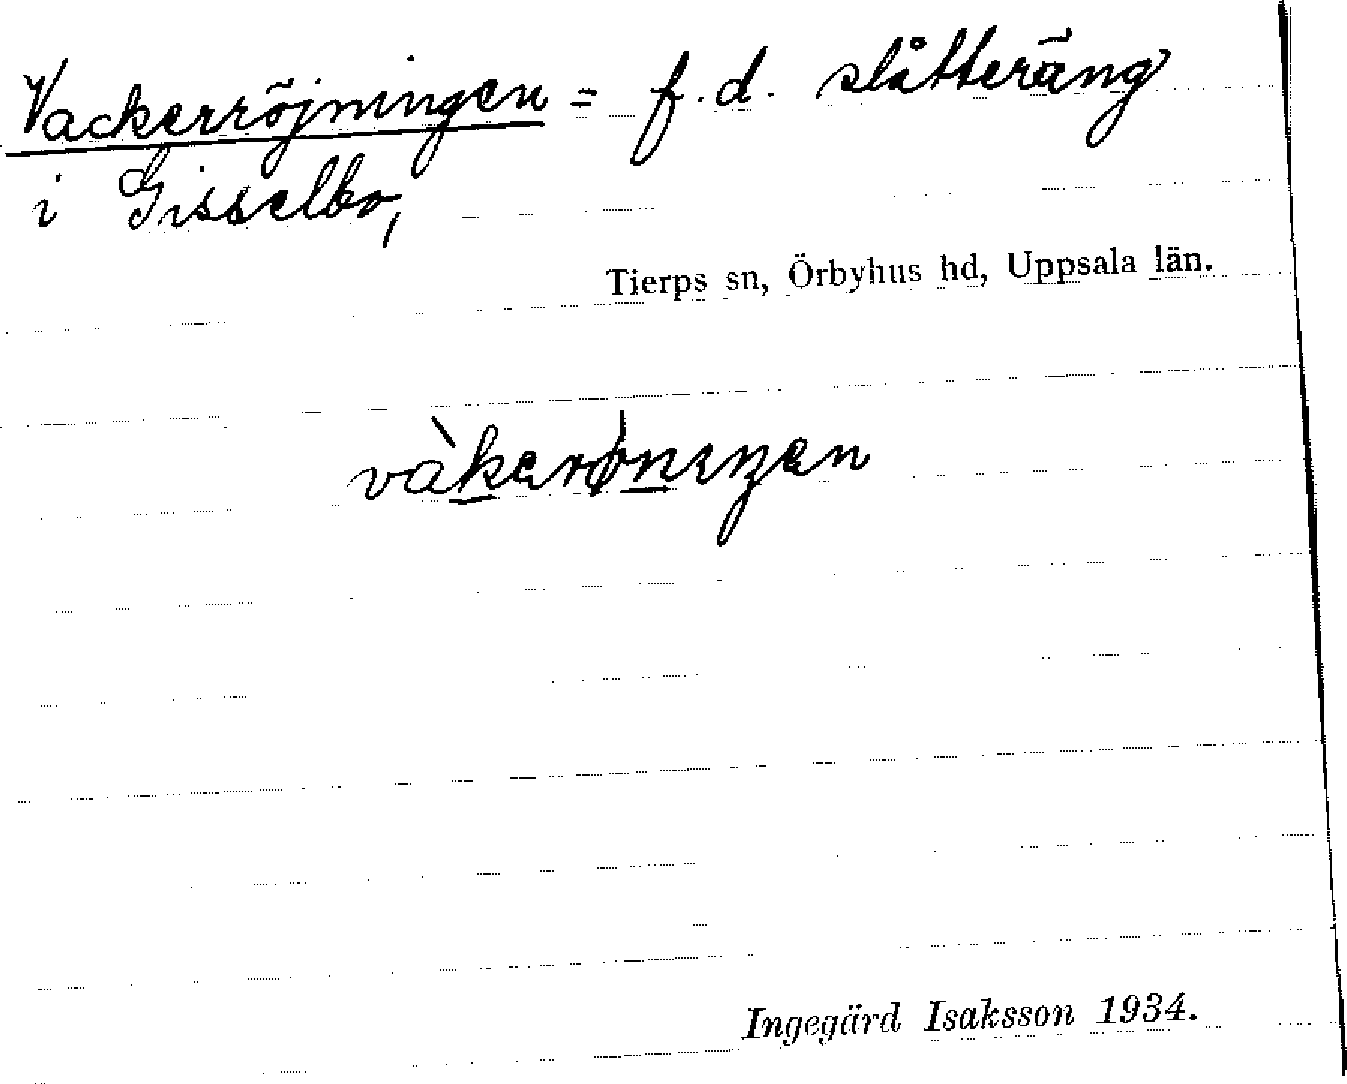 Vackerröjningen = f.d. slåtteräng
i Gisselbo,
Tierps sn, Örbyhus hd, Uppsala län.
vàkerønıŋen
Ingegärd Isaksson 1934.